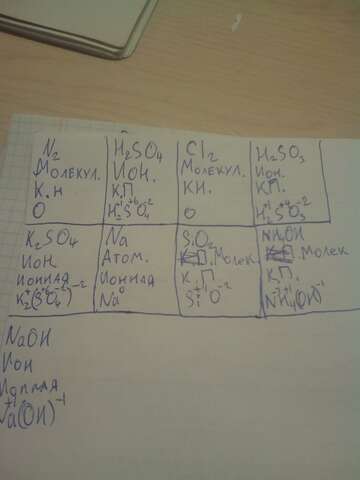 N₂
Молекул.
К.Н
O
H₂SO₄
Ион.
К.П
H₂⁺¹S⁺⁶O₄⁻²
Cl₂
Молекул.
КН.
O
H₂SO₃
Ион.
К.П.
H₂⁺¹S⁺⁴O₃⁻²
K₂SO₄
Ион
ионная
Na
Атом.
Ионная
Na⁰
SiO₂
Молек
К.П.
NH₄OH
Молек
К.П.
NaOH
Ион
Ионная